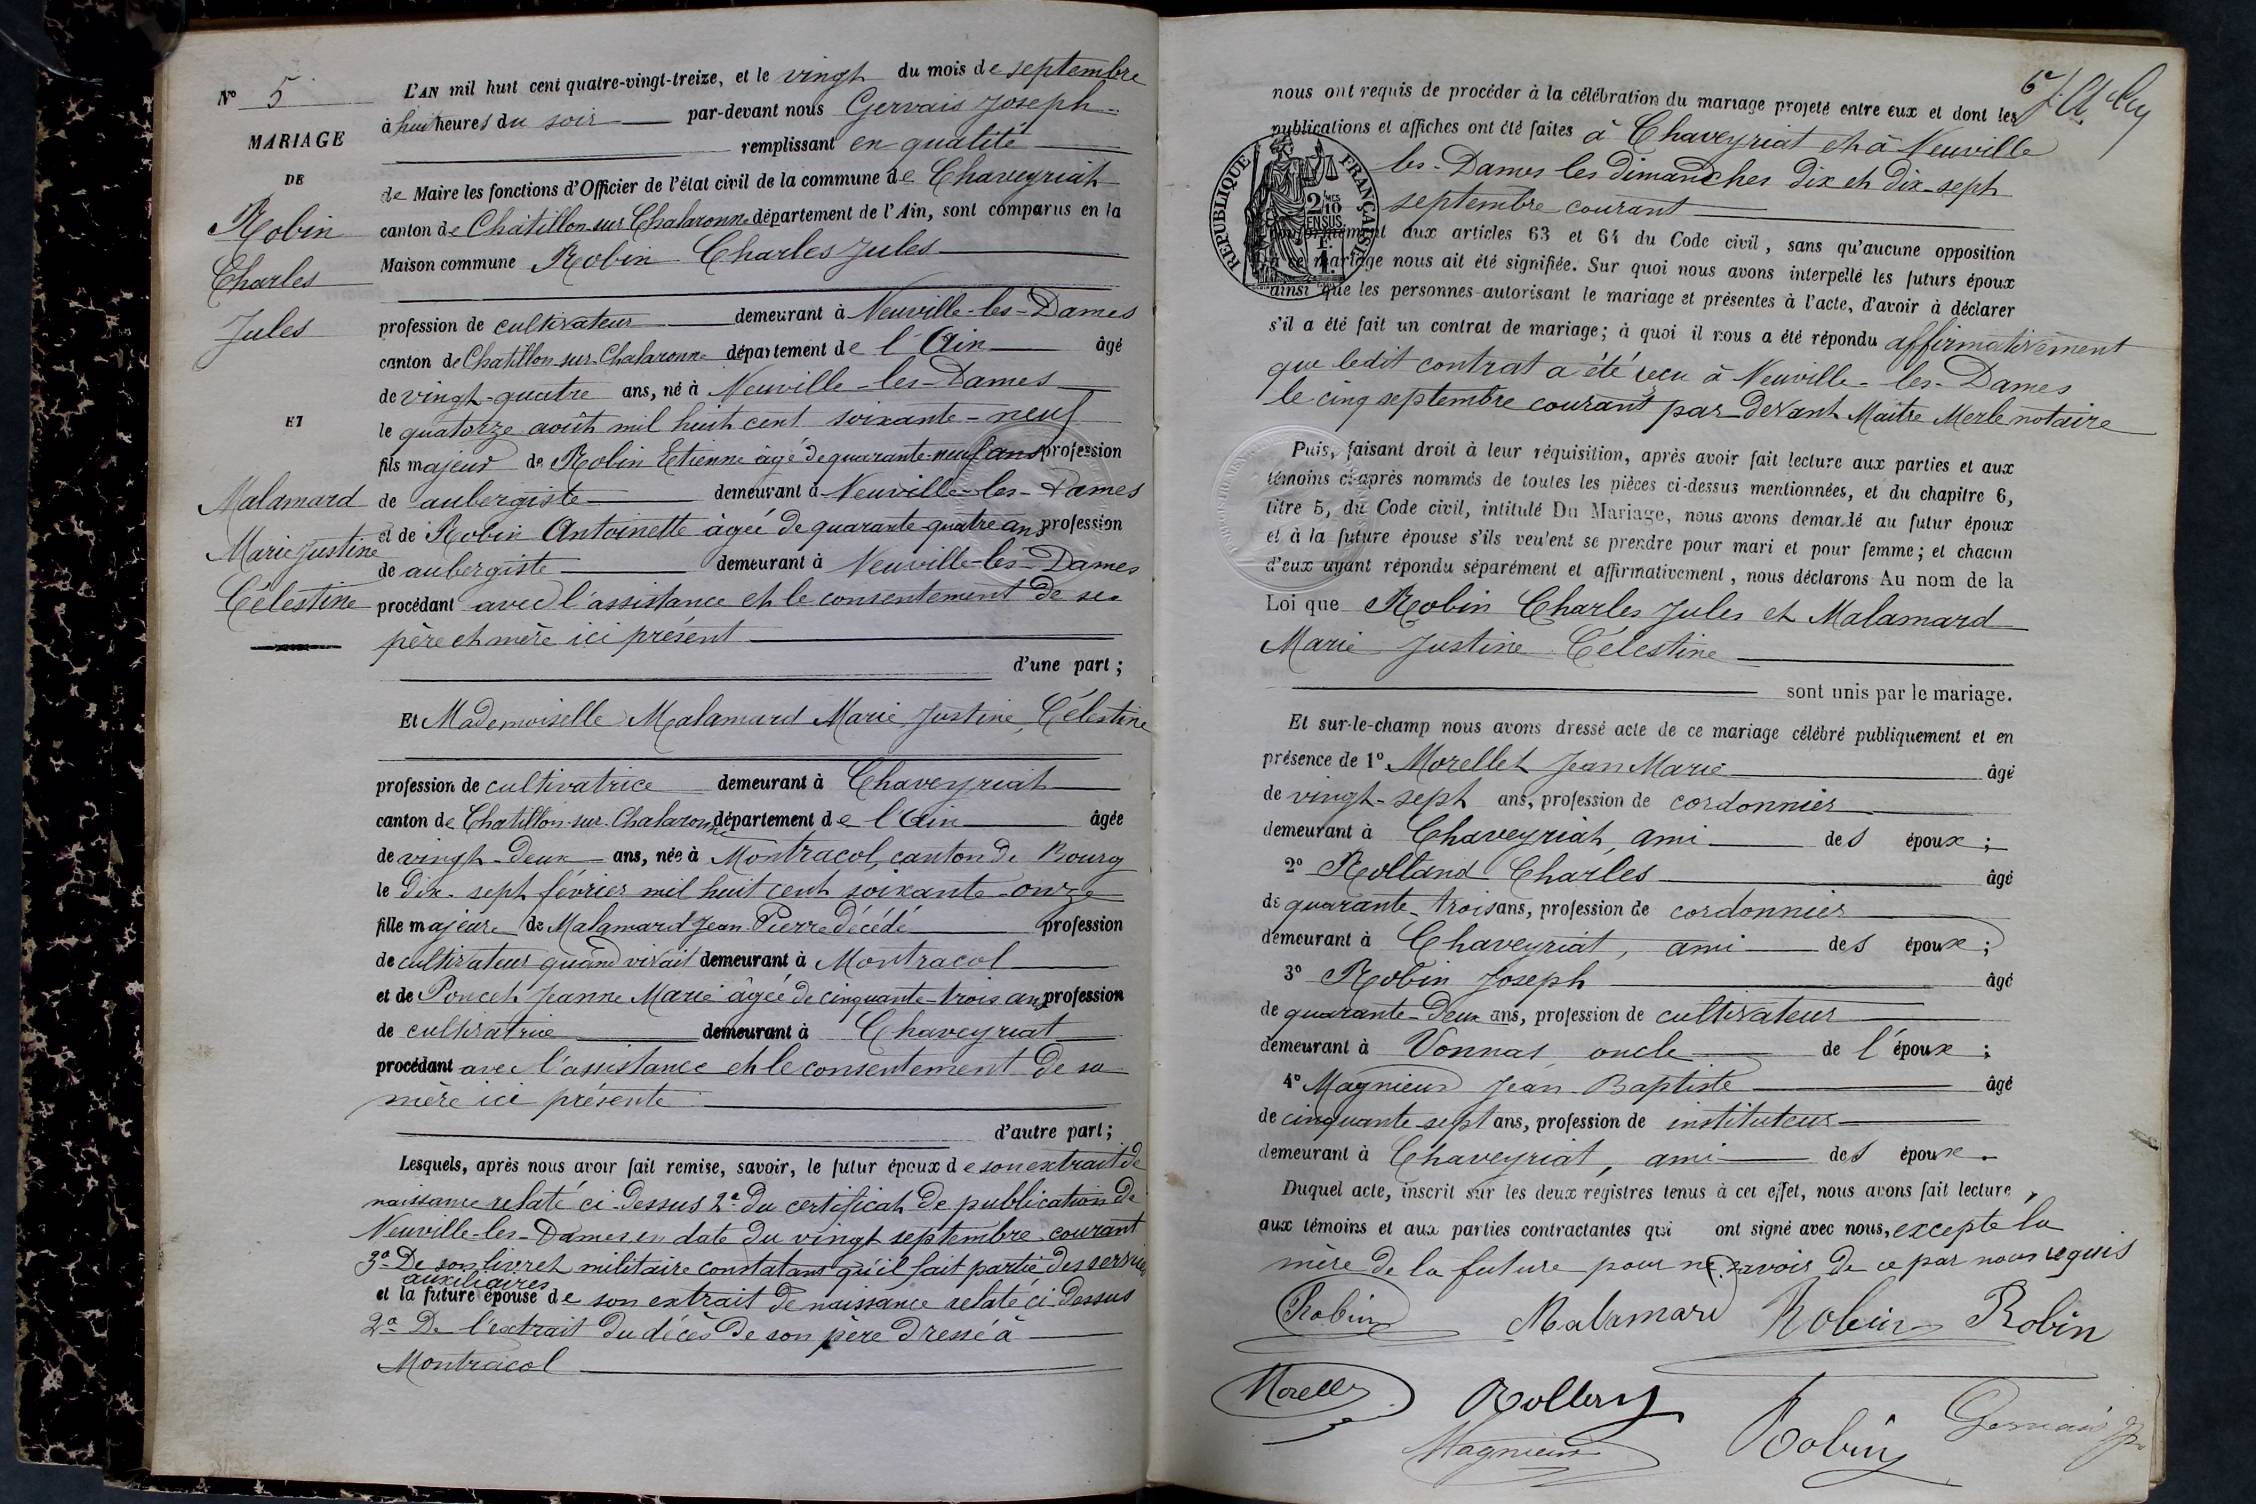 N° 5
MARIAGE
DE
Robin
Charles
Jules
ET
Malamard
Marie Justine
Célestine
L'AN mil huit cent quatre-vingt-treize, et le vingt du mois de septembre
à huit heures du soir par-devant nous Gervais Joseph
remplissant en qualité
de Maire les fonctions d'Officier de l'état civil de la commune de Chaveyriat
canton de Châtillon-sur-Chalaronne département de l'Ain, sont comparus en la
Maison commune Robin Charles Jules
profession de cultivateur demeurant à Neuville-les-Dames
canton de Chatillon-sur-Chalaronne département de l'Ain âgé
de vingt-quatre ans, né à Neuville-les-Dames
le quatorze août mil huit cent soixante-neuf
fils majeur de Robin Etienne âgé de quarante-neuf ans profession
de aubergiste demeurant à Neuville-les-Dames
et de Robin Antoinette âgée de quarante-quatre ans profession
de aubergiste demeurant à Neuville-les-Dames
procédant avec l'assistance et le consentement de ses
père et mère ici présent
d'une part ;
Et Mademoiselle Malamard Marie Justine, Célestine
profession de cultivatrice demeurant à Chaveyriat
canton de Chatillon-sur-Chalaronne département de l'Ain âgée
de vingt-deux ans, née à Montracol, canton de Bourg
le dix-sept février mil huit cent soixante-onze
fille majeure de Malamard Jean-Pierre décédé profession
de cultivateur quand vivait demeurant à Montracol
et de Poncet Jeanne Marie âgée de cinquante-trois ans profession
de cultivatrice demeurant à Chaveyriat
procédant avec l'assistance et le consentement de sa
mère ici présente
d'autre part ;
Lesquels, après nous avoir fait remise, savoir, le futur époux de son extrait de
naissance relaté ci-dessus 2° du certificat de publication de
Neuville-les-Dames en date du vingt septembre courant
3° De son livret militaire constatant qu'il fait partie des services
auxiliaires
et la future épouse de son extrait de naissance relaté ci-dessus
2° De l'extrait du décès de son père dressé à
Montracol
nous ont requis de procéder à la célébration du mariage projeté entre eux et dont les
publications et affiches ont été faites à Chaveyriat et à Neuville
les-Dames les dimanches dix et dix-sept
septembre courant
RÉPUBLIQUE FRANÇAISE
2/10
EN SUS
conformément aux articles 63 et 64 du Code civil, sans qu'aucune opposition
à ce mariage nous ait été signifiée. Sur quoi nous avons interpellé les futurs époux
ainsi que les personnes autorisant le mariage et présentes à l'acte, d'avoir à déclarer
s'il a été fait un contrat de mariage ; à quoi il nous a été répondu affirmativement
que ledit contrat a été reçu à Neuville-les-Dames
le cinq septembre courant par-devant Maître Merle notaire
Puis, faisant droit à leur réquisition, après avoir fait lecture aux parties et aux
témoins ci-après nommés de toutes les pièces ci-dessus mentionnées, et du chapitre 6,
titre 5, du Code civil, intitulé Du Mariage, nous avons demandé au futur époux
et à la future épouse s'ils veulent se prendre pour mari et pour femme ; et chacun
d'eux ayant répondu séparément et affirmativement, nous déclarons Au nom de la
Loi que Robin Charles Jules et Malamard
Marie Justine Célestine
sont unis par le mariage.
Et sur-le-champ nous avons dressé acte de ce mariage célébré publiquement et en
présence de 1° Morellet Jean Marie âgé
de vingt-sept ans, profession de cordonnier
demeurant à Chaveyriat, ami des époux ;
2° Rolland Charles âgé
de quarante-trois ans, profession de cordonnier
demeurant à Chaveyriat, ami des époux ;
3° Robin Joseph âgé
de quarante-deux ans, profession de cultivateur
demeurant à Vonnas oncle de l'époux ;
4° Magnieux Jean-Baptiste âgé
de cinquante-sept ans, profession de instituteur
demeurant à Chaveyriat, ami des époux.
Duquel acte, inscrit sur les deux registres tenus à cet effet, nous avons fait lecture,
aux témoins et aux parties contractantes qui ont signé avec nous, excepté la
mère de la future pour ne savoir de ce par nous requis
Robin Malamard Robin Robin
Morellet
Magnieux Robin Gervais